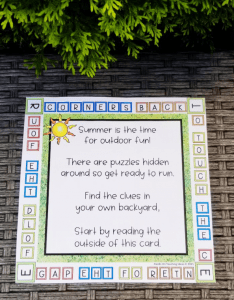 R CORNERS BACK T
O TOUCH THE C
E GAP EHT FO RETN E
UOF EHT DLOF
Summer is the time
for outdoor fun!
There are puzzles hidden
around so get ready to run.
Find the clues in
your own backyard,
Start by reading the
outside of this card.